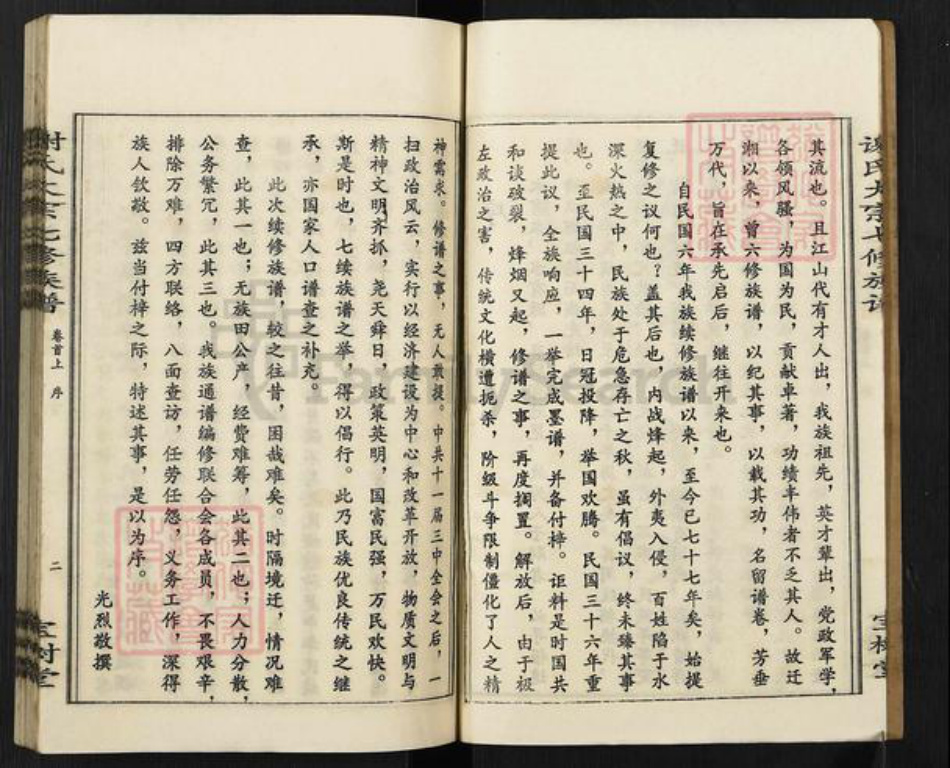 其流也。且江山代有才人出，我族祖先，英才辈出，党政军学，
各领风骚，为国为民，贡献卓著，功绩丰伟者不乏其人。故迁
湘以来，曾六修族谱，以纪其事，以载其功，名留谱卷，芳垂
万代，旨在承先启后，继往开来也。
自民国六年我族续修族谱以来，至今已七十七年矣，始提
复修之议何也？盖其后也，内战烽起，外夷入侵，百姓陷于水
深火热之中，民族处于危急存亡之秋，虽有倡议，终未臻其事
也。至民国三十四年，日冠投降，举国欢腾。民国三十六年重
提此议，全族响应，一举完成墨谱，并备付梓。讵料是时国共
和谈破裂，烽烟又起，修谱之事，再度搁置。解放后，由于极
左政治之害，传统文化横遭扼杀，阶级斗争限制僵化了人之精
神需求。修谱之事，无人敢提。中共十一届三中全会之后，一
扫政治风云，实行以经济建设为中心和改革开放，物质文明与
精神文明齐抓，尧天舜日，政策英明，国富民强，万民欢快。
斯是时也，七续族谱之举，得以倡行。此乃民族优良传统之继
承，亦国家人口普查之补充。
此次续修族谱，较之往昔，困哉难矣。时隔境迁，情况难
查，此其一也；无族田公产，经费难筹，此其二也；人力分散，
公务繁冗，此其三也。我族通谱编修联合会各成员，不畏艰辛，
排除万难，四方联络，八面查访，任劳任怨，义务工作，深得
族人钦敬。兹当付梓之际，特述其事，是以为序。
光烈敬撰
谢氏大宗七修族谱
卷首上 序
二
宝树堂
FamilySearch